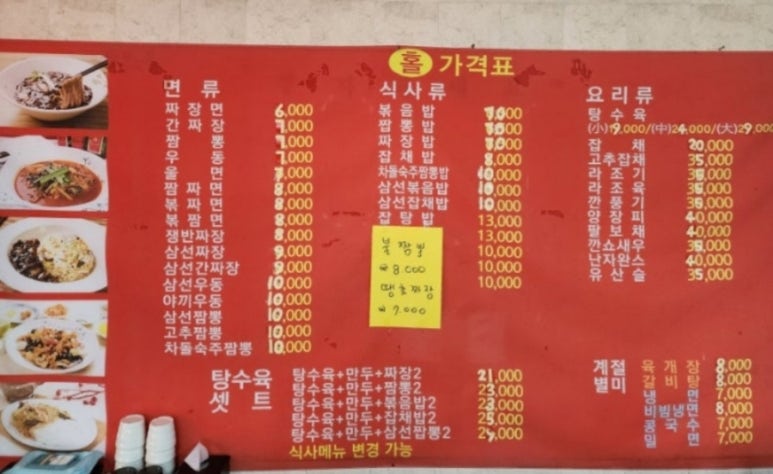 홀 가격표
면 류
짜 장 면 6,000
간 짜 장 7,000
짬 뽕 7,000
우 동 7,000
울 면 7,000
짬 짜 면 8,000
볶 짜 면 8,000
볶 짬 면 8,000
쟁반짜장 8,000
삼선짜장 9,000
삼선간짜장 9,000
삼선우동 10,000
야끼우동 10,000
삼선짬뽕 10,000
고추짬뽕 10,000
차돌숙주짬뽕 10,000
식 사 류
볶 음 밥
짬 뽕 밥
짜 장 밥
잡 채 밥 8,000
차돌숙주짬뽕밥 10,000
삼선볶음밥 10,000
삼선잡채밥 10,000
잡 탕 밥 13,000
13,000
10,000
10,000
10,000
불 짬뽕
₩ 8.000
땡초짜장
₩ 7.000
요 리 류
탕 수 육
(小)19,000/(中)24,000/(大)29,000
잡 채 20,000
고추잡채 35,000
라 조 기
라 조 육
깐 풍 기
양 장 피 40,000
팔 보 채 40,000
깐쇼새우 35,000
난자완스 40,000
유 산 슬 35,000
탕수육
셋 트
탕수육+만두+짜장2 21,000
탕수육+만두+짬뽕2 23,000
탕수육+만두+볶음밥2
탕수육+만두+잡채밥2 25,000
탕수육+만두+삼선짬뽕2 29,000
식사메뉴 변경 가능
계절
별미
육 개 장 8,000
갈 비 탕 8,000
냉 면 7,000
비빔냉면 8,000
콩 국 수 7,000
밀 면 7,000